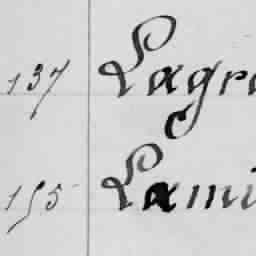 137 Lagra
155 Lami